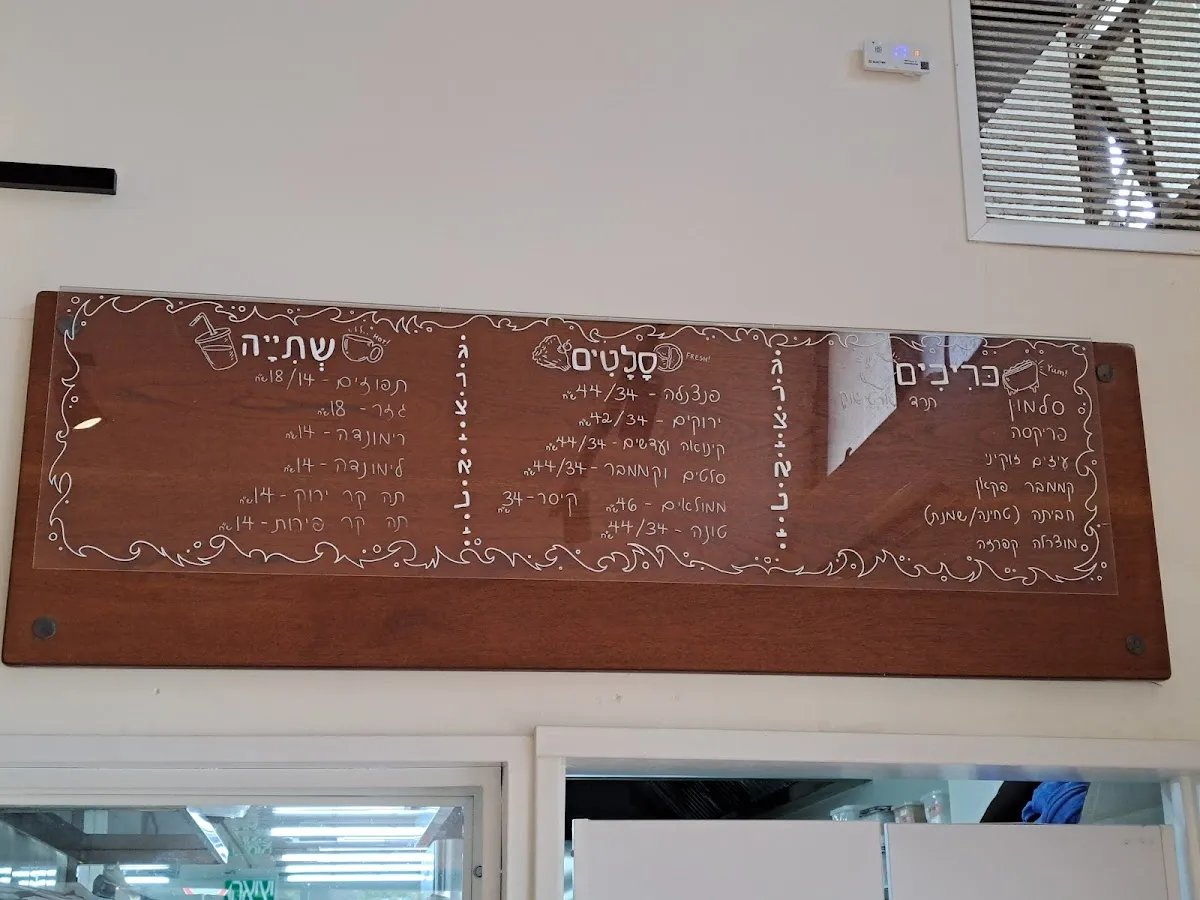 כָּרִיכִים
Yum!
סלמון
תרד
פריקסה
עיזים זוקיני
קממבר פקאן
חביתה (טחינה/שמנת)
מוצרלה קפרזה
גרציאני
סָלָטִים
FRESH!
פנצנלה - 44/34 ש"ח
ירוקים - 42/34 ש"ח
קינואה ועדשים - 44/34 ש"ח
סלטים וקממבר - 44/34 ש"ח
ממולאים - 46 ש"ח
קיסר - 34 ש"ח
טונה - 44/34 ש"ח
שְׁתִייָה
HOT!
תפוזים - 18/14 ש"ח
גזר - 18 ש"ח
רימונדה - 14 ש"ח
לימונדה - 14 ש"ח
תה קר ירוק - 14 ש"ח
תה קר פירות - 14 ש"ח